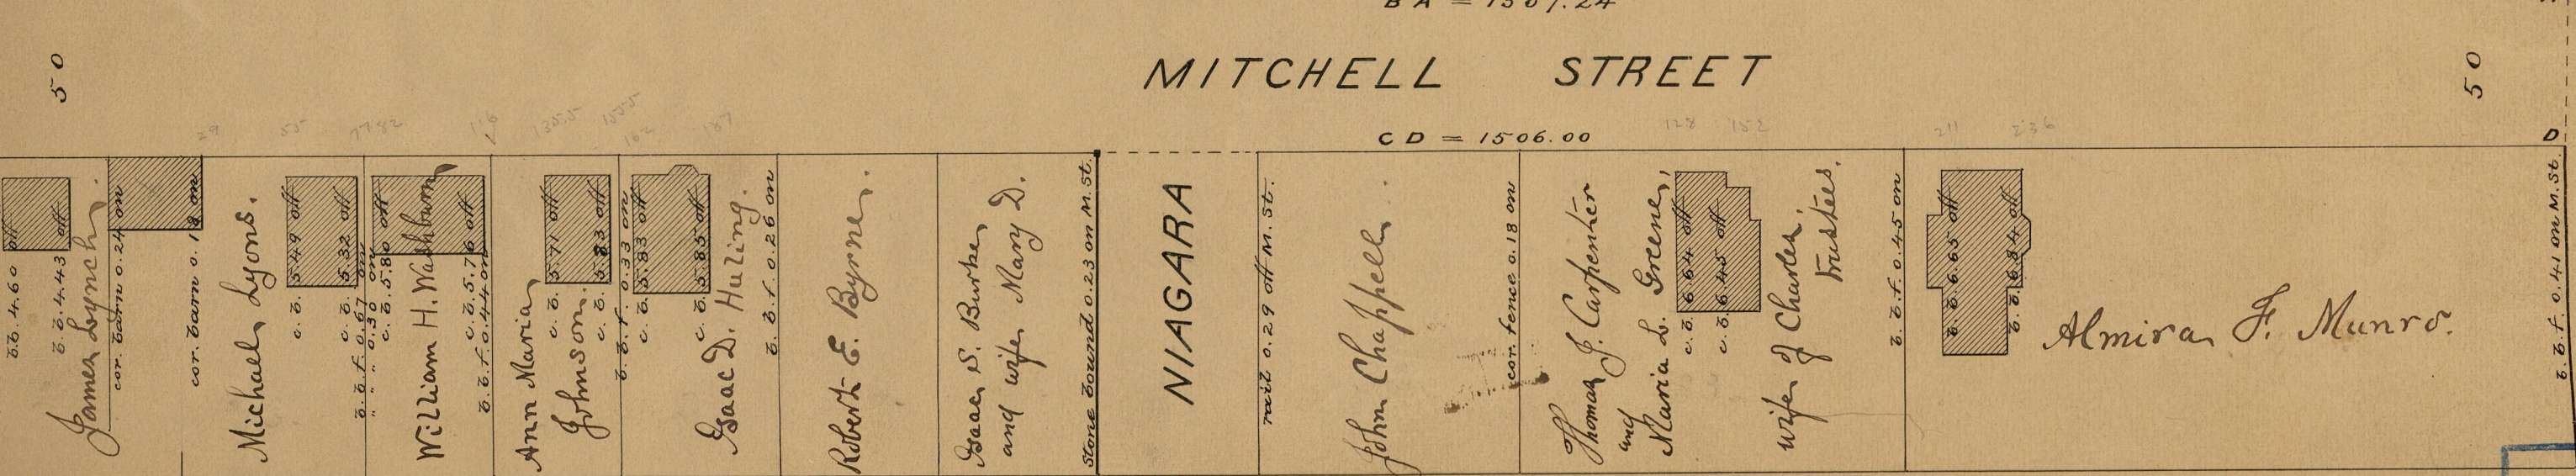 B A = 1507.24
50
MITCHELL STREET
50
29
55
77 82
116
135.5
155.5
162
187
C D = 1506.00
128
152
211
236
D
b.b. 4.60 off
b.b. 4.43 off
James Lynch.
cor. barn 0.24 on
cor. barn 0.18 on
Michael Lyons.
c. b. 5.49 off
c. b. 5.32 off
b. b. f. 0.67 on
" " " 0.30 on
c. b. 5.80 off
William H. Washburn
c. b. 5.76 off
b. b. f. 0.44 on
Ann Maria
Johnson.
c. b. 5.71 off
c. b. 5.83 off
b. b. f. 0.33 on
c. b. 5.83 off
c. b. 5.85 off
Isaac D. Huling.
b. b. f. 0.26 on
Robert E. Byrne.
Isaac S. Burke,
and wife Mary D.
Stone bound 0.23 on M. St.
NIAGARA
rail 0.29 off M. St.
John Chappell.
cor. fence 0.18 on
Thomas J. Carpenter
and
Maria L. Greene,
c. b. 6.64 off
c. b. 6.45 off
wife of Charles,
trustees.
b. b. f. 0.45 on
b. b. 6.65 off
b. b. 6.84 off
Almira F. Munro.
b. b. f. 0.41 on M. St.